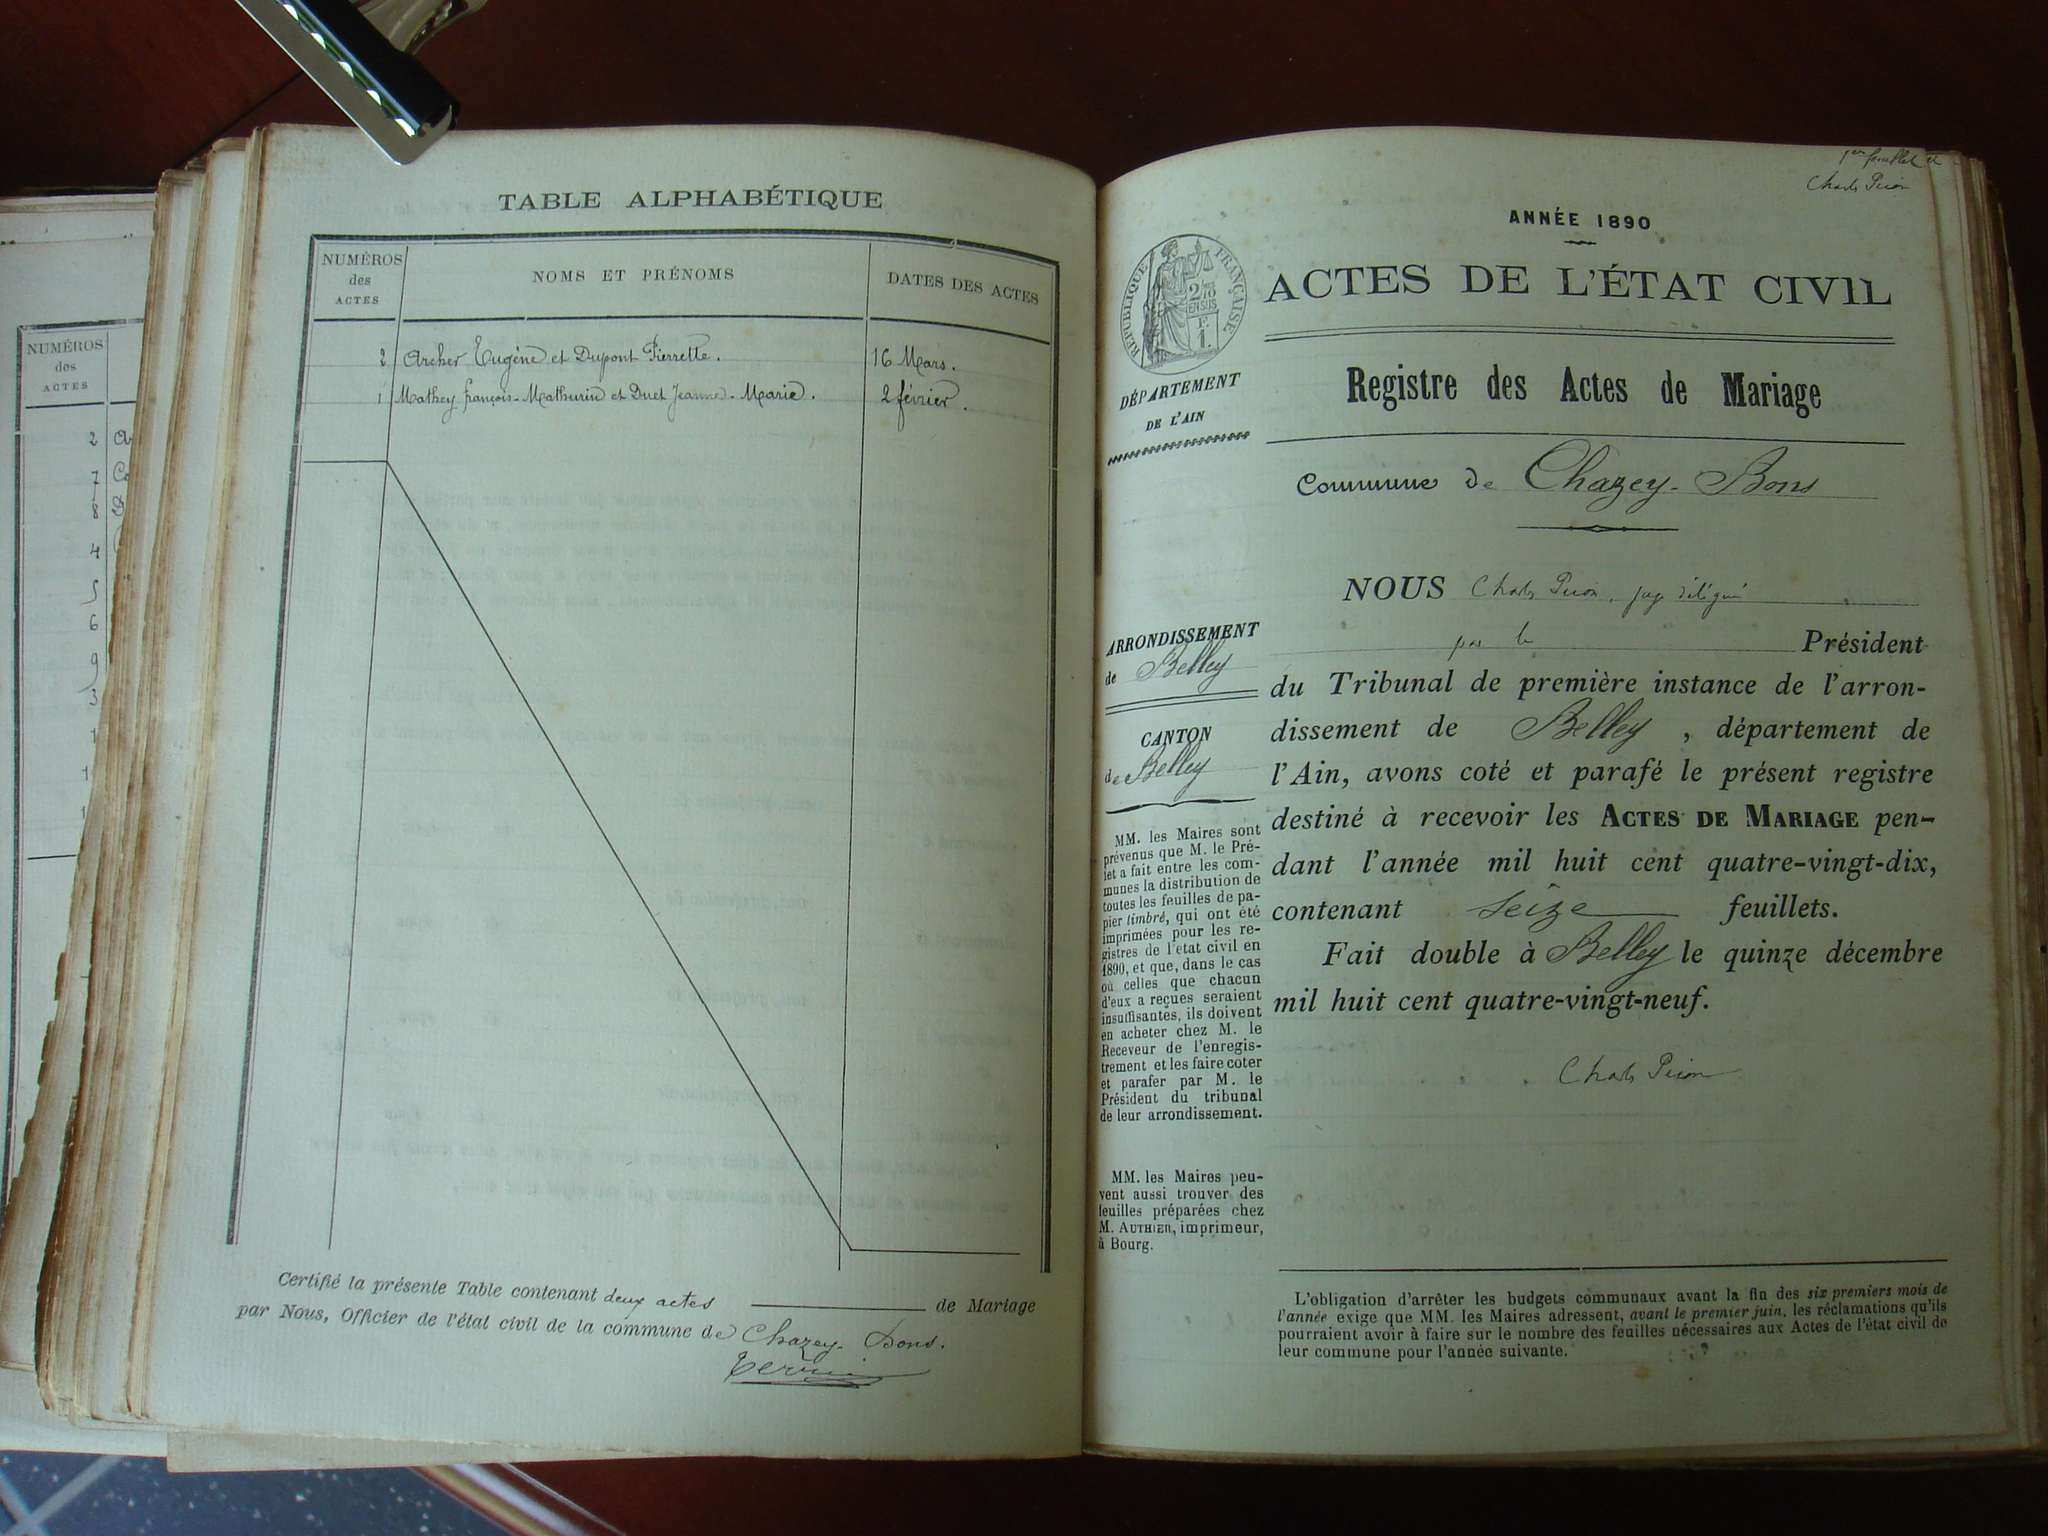 NUMÉROS
des
ACTES
2
7
8
4
5
6
9
3
TABLE ALPHABÉTIQUE
NUMÉROS
des
ACTES
NOMS ET PRÉNOMS
DATES DES ACTES
2 Archer Eugène et Dupont Pierrette. 16 Mars.
1 Mathey françois-Mathurin et Duet Jeanne-Marie. 2 février.
Certifié la présente Table contenant deux actes de Mariage
par Nous, Officier de l'état civil de la commune de Chazey-Bons.
1er feuillet
Charles
ANNÉE 1890
RÉPUBLIQUE FRANÇAISE
2/10
EN SUS
F.
1.
ACTES DE L'ÉTAT CIVIL
DÉPARTEMENT
DE L'AIN
Registre des Actes de Mariage
Commune de Chazey-Bons
NOUS Charles juge délégué
par le Président
du Tribunal de première instance de l'arron-
dissement de Belley, département de
l'Ain, avons coté et parafé le présent registre
destiné à recevoir les ACTES DE MARIAGE pen-
dant l'année mil huit cent quatre-vingt-dix,
contenant seize feuillets.
Fait double à Belley le quinze décembre
mil huit cent quatre-vingt-neuf.
Charles
ARRONDISSEMENT
de Belley
CANTON
de Belley
MM. les Maires sont
prévenus que M. le Pré-
fet a fait entre les com-
munes la distribution de
toutes les feuilles de pa-
pier timbré, qui ont été
imprimées pour les re-
gistres de l'état civil en
1890, et que, dans le cas
où celles que chacun
d'eux a reçues seraient
insuffisantes, ils doivent
en acheter chez M. le
Receveur de l'enregis-
trement et les faire coter
et parafer par M. le
Président du tribunal
de leur arrondissement.
MM. les Maires peu-
vent aussi trouver des
feuilles préparées chez
M. AUTHIER, imprimeur,
à Bourg.
L'obligation d'arrêter les budgets communaux avant la fin des six premiers mois de
l'année exige que MM. les Maires adressent, avant le premier juin, les réclamations qu'ils
pourraient avoir à faire sur le nombre des feuilles nécessaires aux Actes de l'état civil de
leur commune pour l'année suivante.